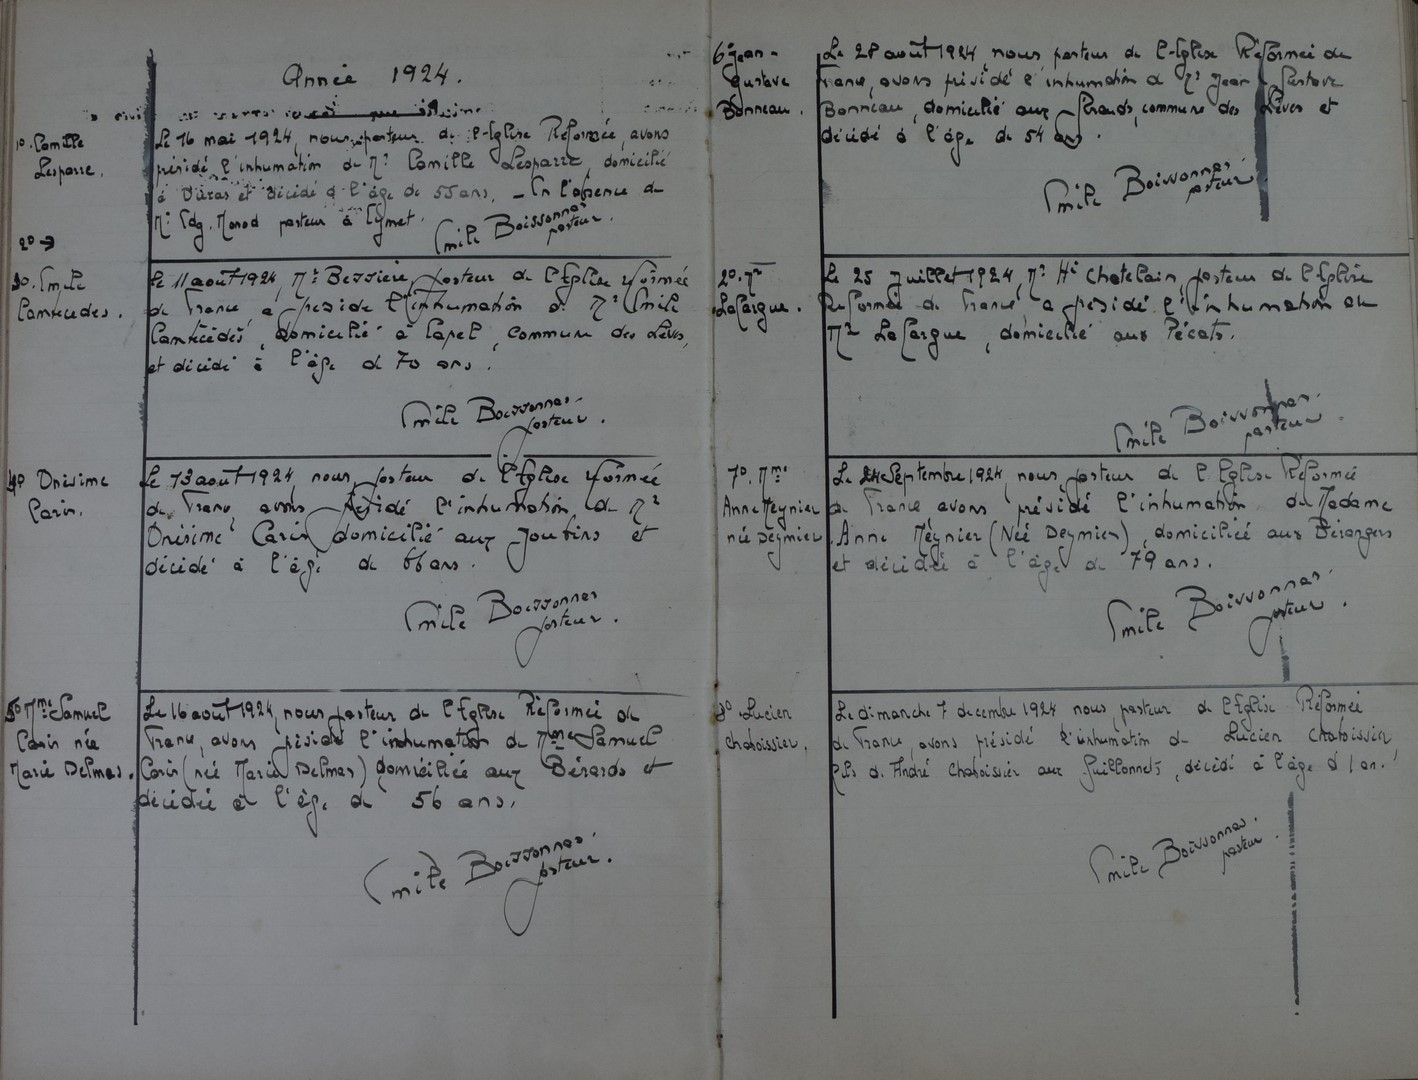 Année 1924.
1º. Camille
Lesparre.
Le 16 mai 1924, nous, pasteur de l'Eglise Réformée, avons
présidé l'inhumation de Mr Camille Lesparre, domicilié
à Duras et décédé à l'âge de 55 ans. _ En l'absence de
Mr Edg. Monod pasteur à Eymet.
Emile Boissonnas
pasteur.
2º →
3º. Emile
Le 11 août 1924, Mr Bessière, pasteur de l'Eglise réformée
de France a présidé l'inhumation de Mr Emile
domicilié à Capel, commune des Lèves,
et décédé à l'âge de 70 ans.
Emile Boissonnas
pasteur.
4º Onésime
Carin.
Le 13 août 1924, nous, pasteur de l'Eglise réformée
de France avons présidé l'inhumation de Mr
Onésime Carin domicilié aux Joutins et
décédé à l'âge de 66 ans.
Emile Boissonnas
pasteur.
5º Mme Samuel
Carin née
Marie Delmas.
Le 16 août 1924, nous pasteur de l'Eglise Réformée de
France, avons présidé l'inhumation de Mme Samuel
Carin (née Marie Delmas) domiciliée aux Bérards et
décédée à l'âge de 56 ans.
Emile Boissonnas
pasteur.
6º Jean-
Gustave
Bonneau.
Le 28 août 1924, nous pasteur de l'Eglise Réformée de
France, avons présidé l'inhumation de Mr Jean Gustave
Bonneau, domicilié aux commune des Lèves et
décédé à l'âge de 54 ans.
Emile Boissonnas
pasteur
2º. Mr
Lafargue.
Le 25 Juillet 1924, Mr Hi Chatelain, pasteur de l'Eglise
Réformée de France, a présidé l'inhumation de
Mr Lafargue, domicilié aux Pécats.
Emile Boissonnas
pasteur
7º. Mme
Anne Meynier
née Deymier
Le 24 Septembre 1924, nous, pasteur de l'Eglise Réformée
de France avons présidé l'inhumation de Madame
Anne Meynier (Née Deymier), domiciliée aux Bérangers
et décédée à l'âge de 79 ans.
Emile Boissonnas
pasteur.
8º Lucien
Chaboissier.
Le dimanche 7 décembre 1924 nous, pasteur de l'Eglise Réformée
de France, avons présidé l'inhumation de Lucien Chaboissier,
fils d'André Chaboissier aux Guillonnets, décédé à l'âge d'1 an.
Emile Boissonnas.
pasteur.